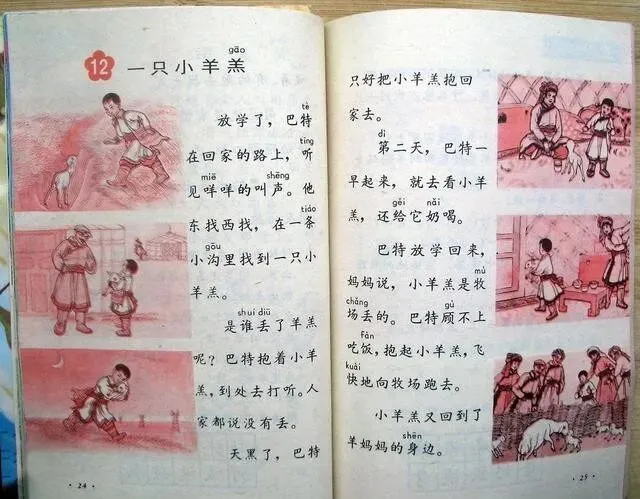 12 一只小羊羔
gāo
放学了，巴特
tè
在回家的路上，听
tīng
见咩咩的叫声。他
miē shēng
东找西找，在一条
tiáo
小沟里找到一只小
gōu
羊羔。
是谁丢了羊羔
shuí diū
呢？巴特抱着小羊
羔，到处去打听。人
家都说没有丢。
天黑了，巴特
·24·
只好把小羊羔抱回
家去。
第二天，巴特一
dì
早起来，就去看小羊
羔，还给它奶喝。
gěi nǎi
巴特放学回来，
妈妈说，小羊羔是牧
mù
场丢的。巴特顾不上
chǎng gù
吃饭，抱起小羊羔，飞
fàn
快地向牧场跑去。
kuài
小羊羔又回到了
羊妈妈的身边。
shēn
·25·